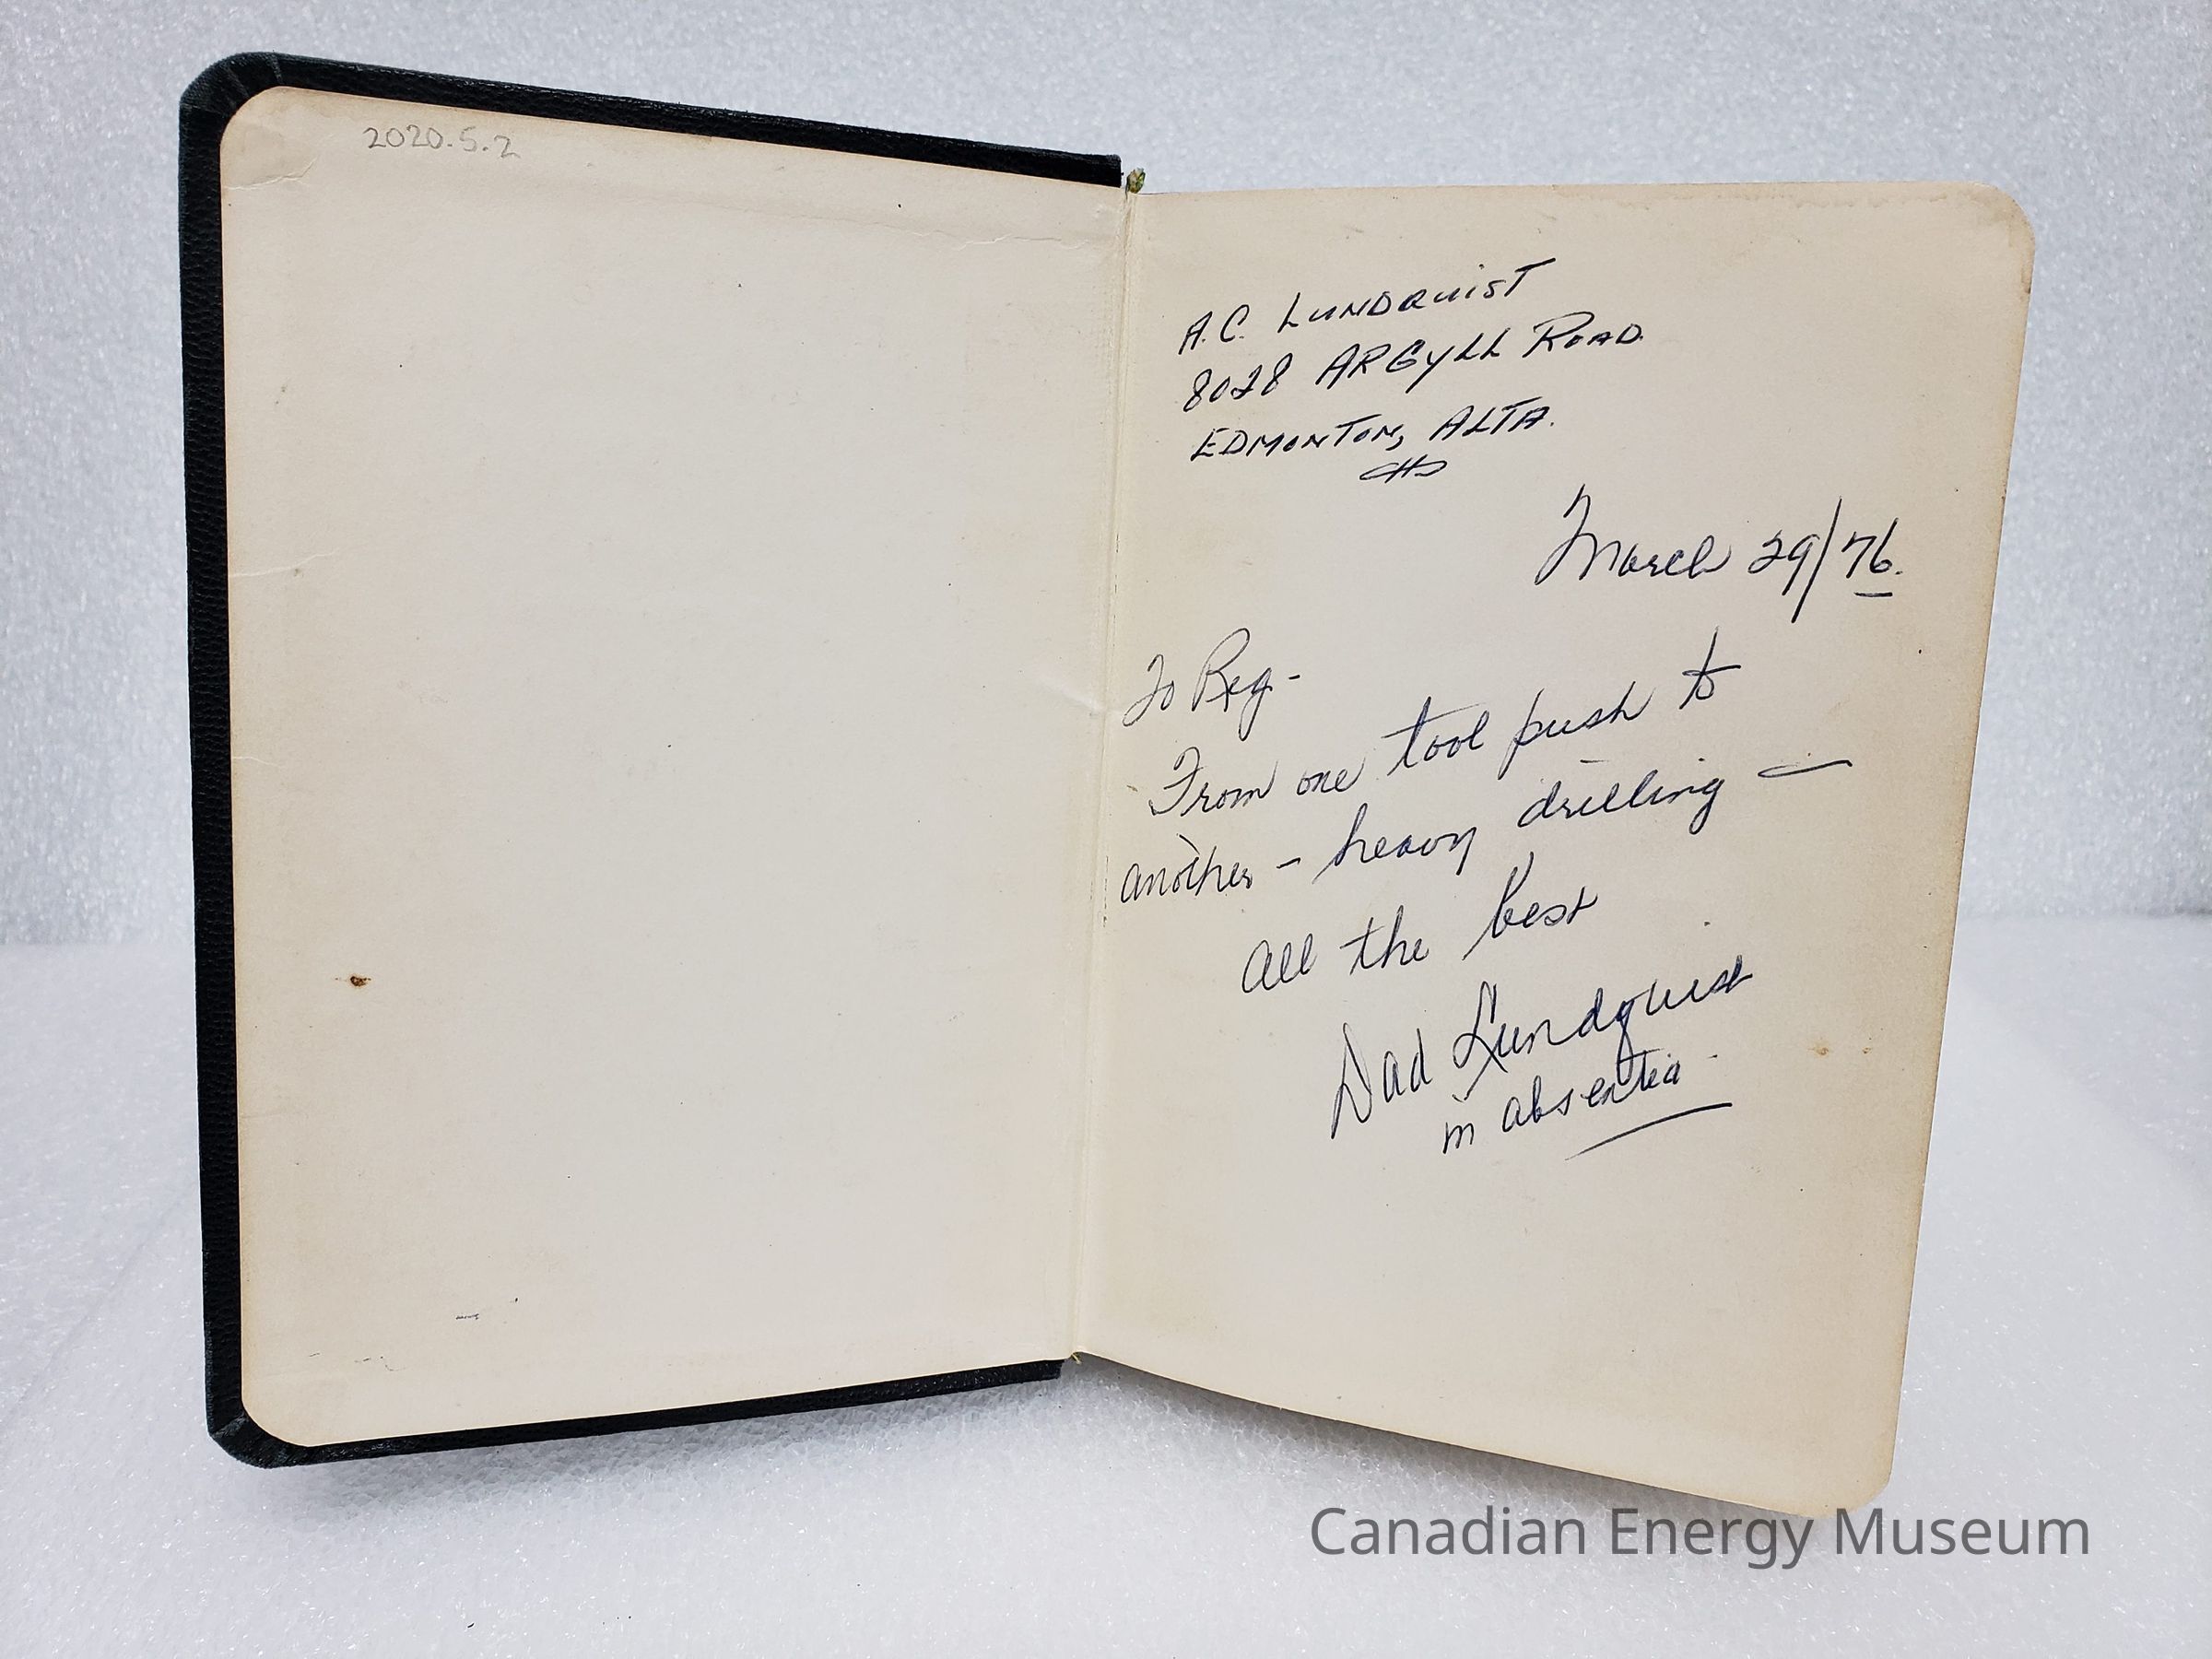 2020.5.2
A.C. LUNDQUIST
8028 ARGYLL ROAD
EDMONTON, ALTA.
March 29/76.
To Reg-
From one tool push to
another - heavy drilling —
All the best
Dad Lundquist
in absentia
Canadian Energy Museum